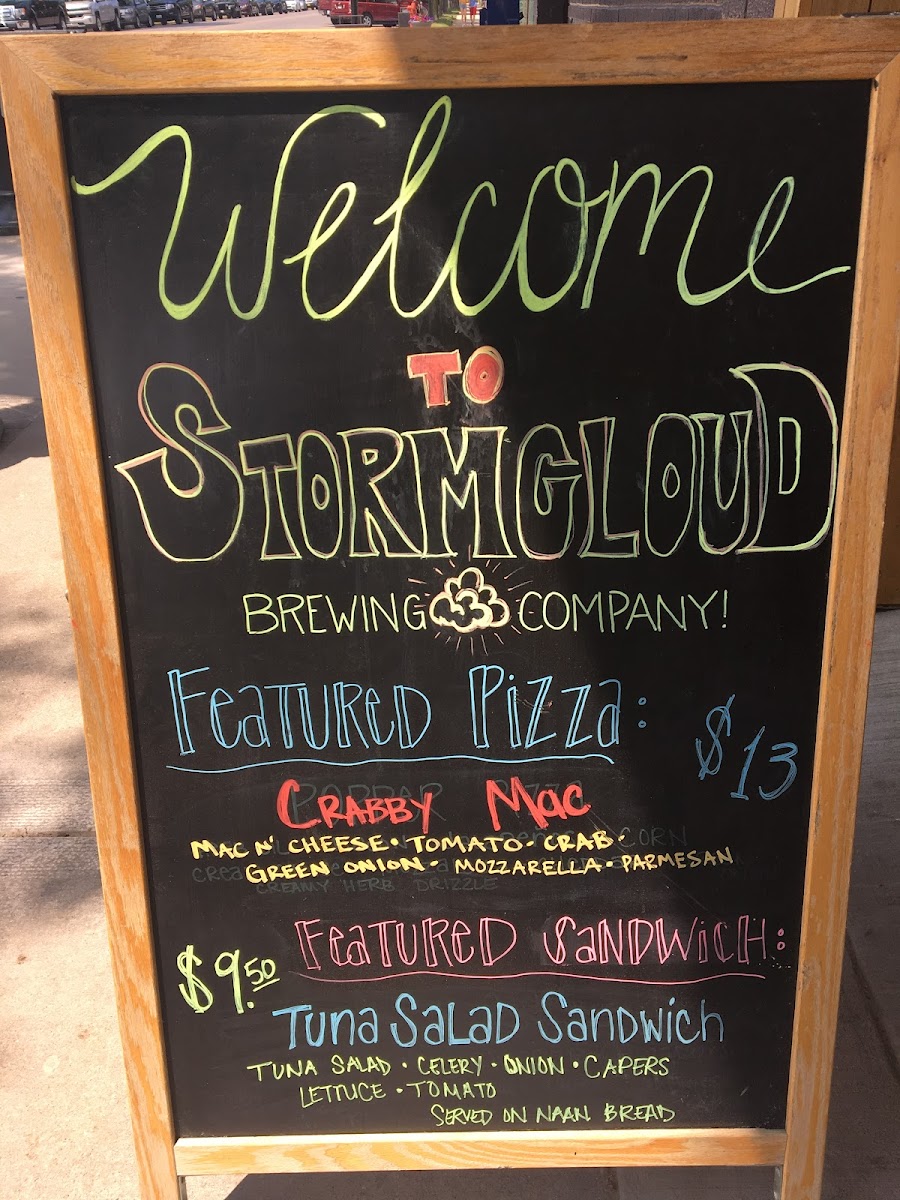 Welcome
TO
STORMCLOUD
BREWING COMPANY!
FEATURED PIZZA:
$13
CRABBY MAC
MAC N' CHEESE · TOMATO · CRAB ·
GREEN ONION · MOZZARELLA · PARMESAN
CREAMY HERB DRIZZLE
FEATURED SANDWICH:
$9.50
TUNA SALAD SANDWICH
TUNA SALAD · CELERY · ONION · CAPERS
LETTUCE · TOMATO
SERVED ON NAAN BREAD